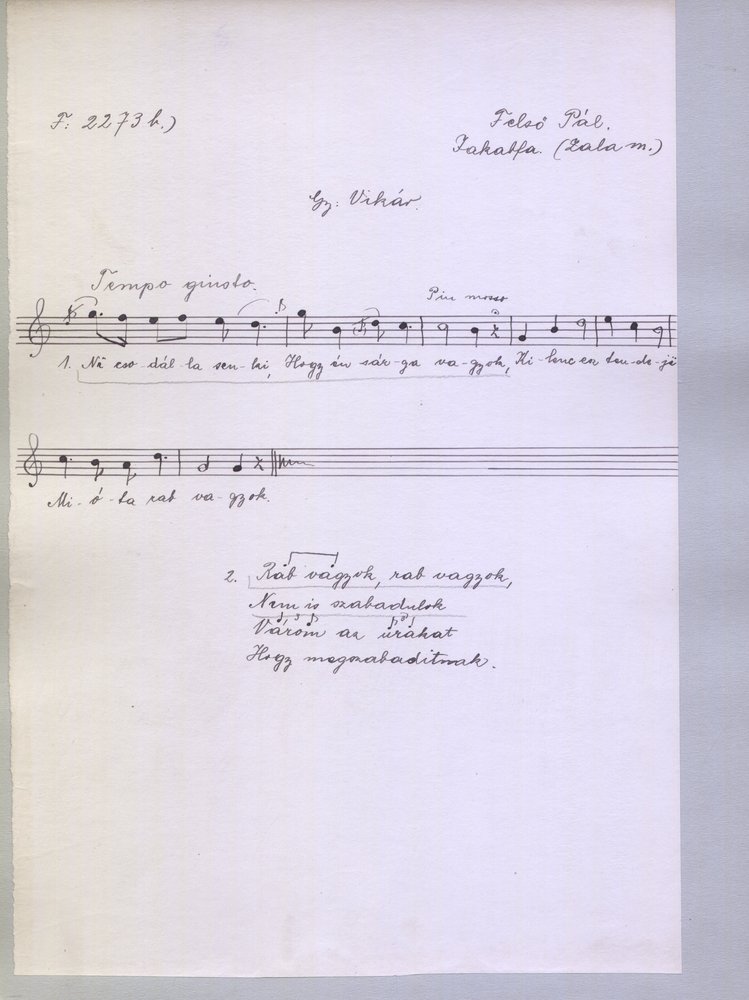 F: 2273 b.)
Felső Pál.
Jakabfa. (Zala m.)
Gy: Vikár.
Tempo giusto.
Piu mosso
1. Në cso-dál-la sen-ki, Hogy én sár-ga va-gyok, Ki-lenc esz ten-de-jë
Mi-ó-ta rab va-gyok.
2. Rab vagyok, rab vagyok,
Nem is szabadulok
3
Várom az urakat
Hogy megszabadítnak.